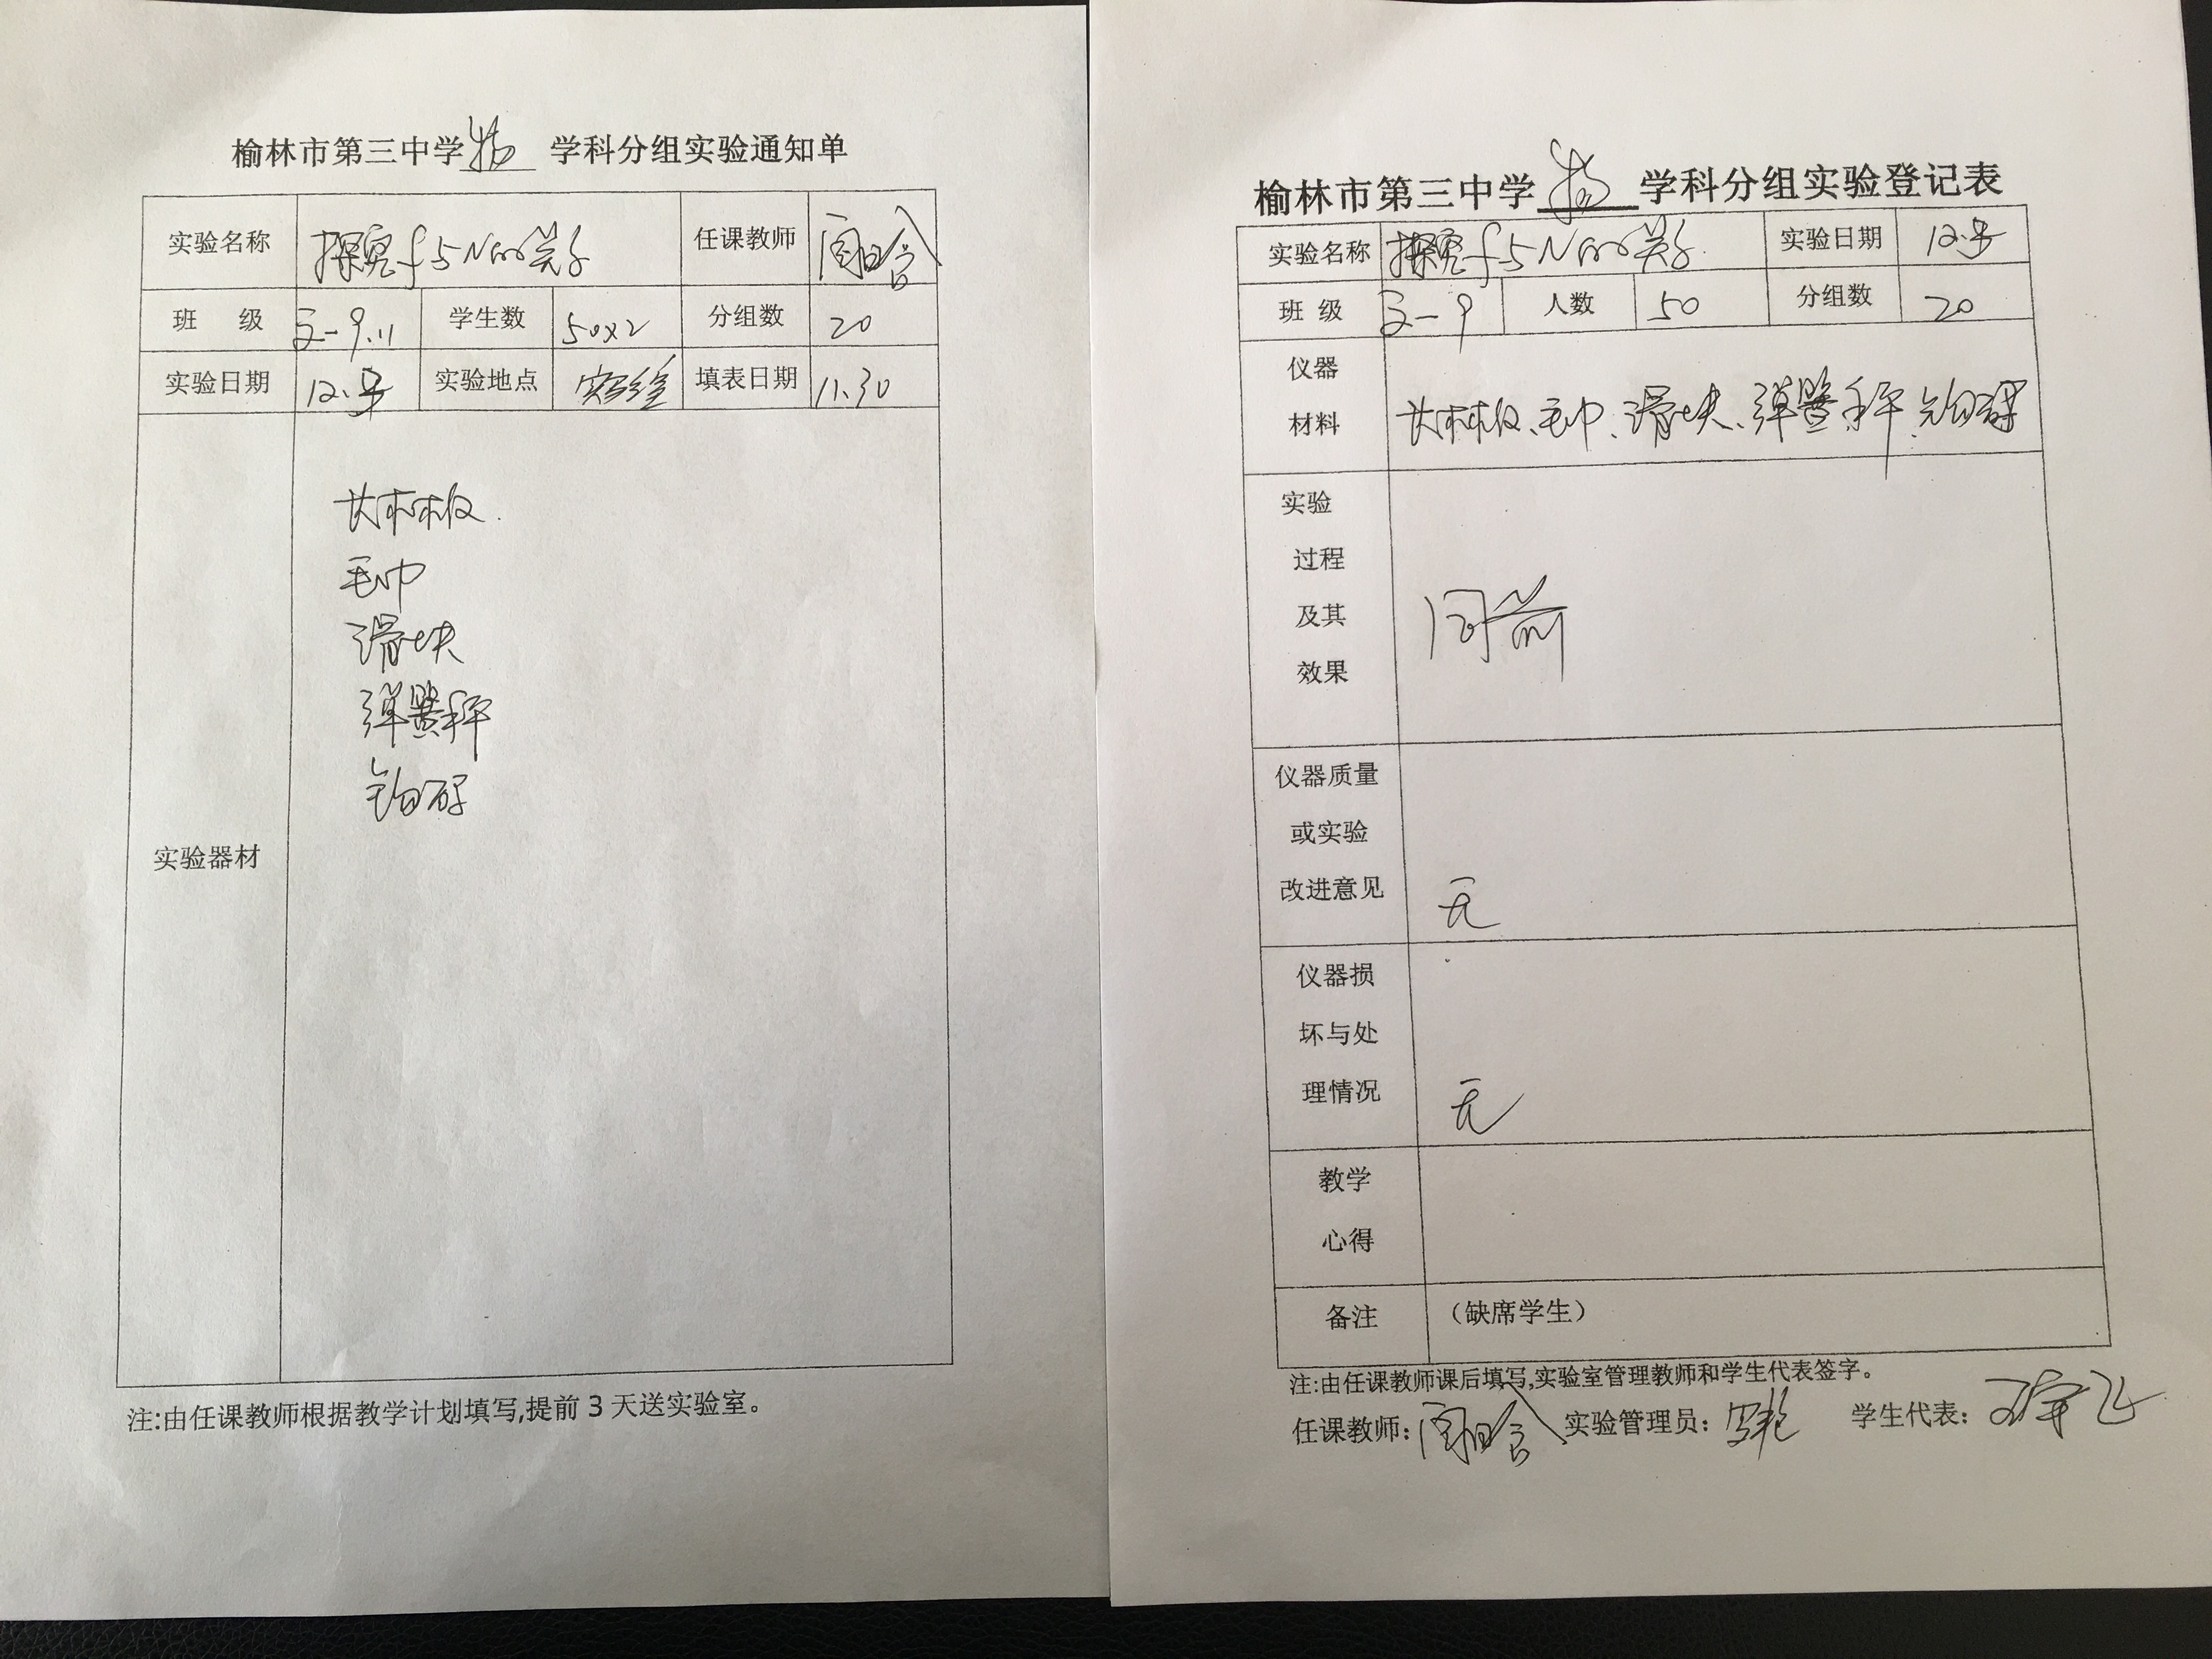 榆林市第三中学 物 学科分组实验通知单
实验名称 探究f与N的关系 任课教师
班 级 高一9.11 学生数 50×2 分组数 20
实验日期 12. 实验地点 实验室 填表日期 11.30
实验器材
长木板.
毛巾
滑块
弹簧秤
钩码
注:由任课教师根据教学计划填写,提前3天送实验室。
榆林市第三中学 物 学科分组实验登记表
实验名称 探究f与N的关系. 实验日期 12.
班 级 高一9 人数 50 分组数 20
仪器
材料
长木板、毛巾、滑块、弹簧秤、钩码
实验
过程
及其
效果
同前
仪器质量
或实验
改进意见
无
仪器损
坏与处
理情况
无
教学
心得
备注 （缺席学生）
注:由任课教师课后填写,实验室管理教师和学生代表签字。
任课教师: 实验管理员: 学生代表: